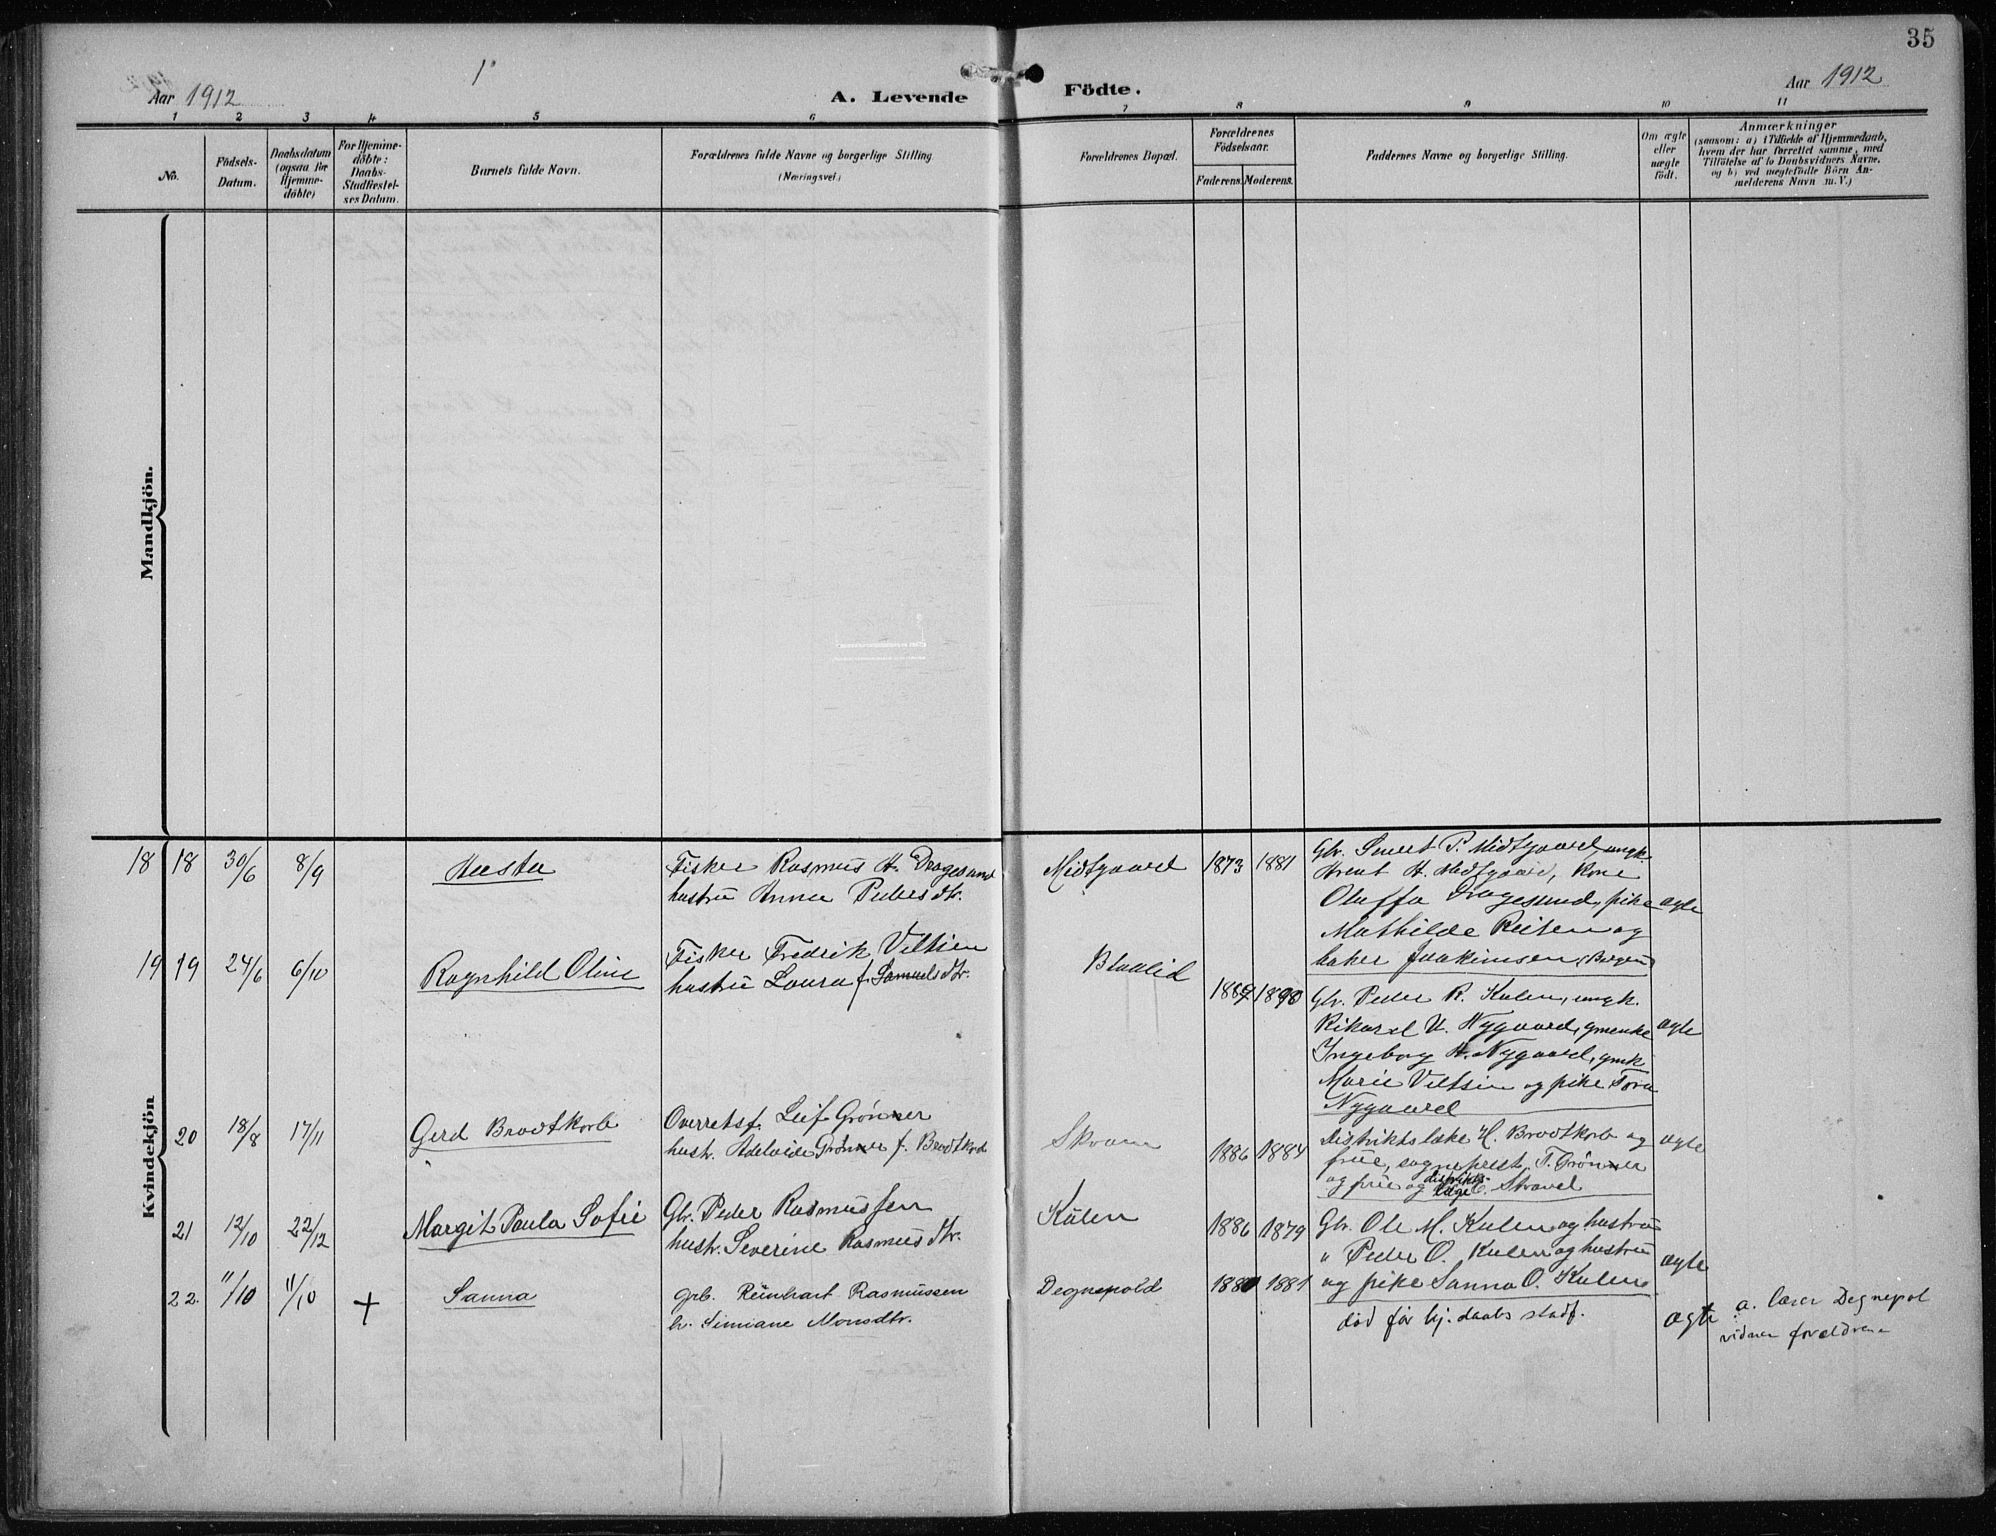 35
1
Aar 1912
A. Levende Födte.
Aar 1912
1 2 3 4 5 6 7 8 9 10 11
No.
Födsels-
Datum.
Daabsdatum
(ogsaa for
Hjemme-
döbte)
For Hjemme-
döbte:
Daabs-
Stadfæstel-
ses Datum.
Barnets fulde Navn.
Forældrenes fulde Navne og borgerlige Stilling.
(Næringsvei.)
Forældrenes Bopæl.
Forældrenes
Födselsaar.
Faderens. Moderens.
Faddernes Navne og borgerlige Stilling.
Om ægte
eller
uægte
födt.
Anmærkninger
(saasom: a) i Tilfælde af Hjemmedaab,
hvem der har forrettet samme, med
Tilföielse af to Daabsvidners Navne,
og b) ved uegtefödte Börn An-
melderens Navn m. V.)
Mandkjön.
Kvindekjön
18 18 30/6 8/9
Fisker Rasmus H. Dragesund
hustru Anna Pedersdtr.
Midtgaard 1873 1881
Glr. P. Midtgaard, ungk.
H. Midtgaard, Kone
Oluffa Dragesund, pike
Mathilde Reiten og
baker Joakimsen, Bergen
ægte
19 19 24/6 6/10
Ragnhild Oline
Fisker Fredrik Veltsien
hustru Laura f. Samuelsdtr.
Blaalid
1889 1890
Glr. Peder R. Kulen, ungk.
Rikard U. Nygaard, gmenke
Ingeborg H. Nygaard, gmk
Marie Veltsien og pike Tora
Nygaard
ægte
20 18/8 17/11
Gerd Brodtkorb
Overretsf. Leif Grönner
hustr. Adelaide Grönner f. Brodtkorb
1886 1884
Distriktslæke H. Brodtkorb og
frue, sogneprest T. Grönner
og frue og distrikts-
læge C. Stravel
ægte
21 12/10 22/12
Margit Paula Sofie
Glr. Peder Rasmussen
hustr. Severine Rasmusdtr.
Kulen
1886 1879
Glr. Ole M. Kulen og hustru
" Peder O. Kulen og hustru
og pike Sanna O. Kulen
ægte
22. 11/10 11/10 +
Sanna
grb. Reinhart Rasmussen
h. Simiane Monsdtr.
Degnepold
1880 1881
död för hj. daabs stadf.
ægte
a. lærer Degnepol
vidner forældrene